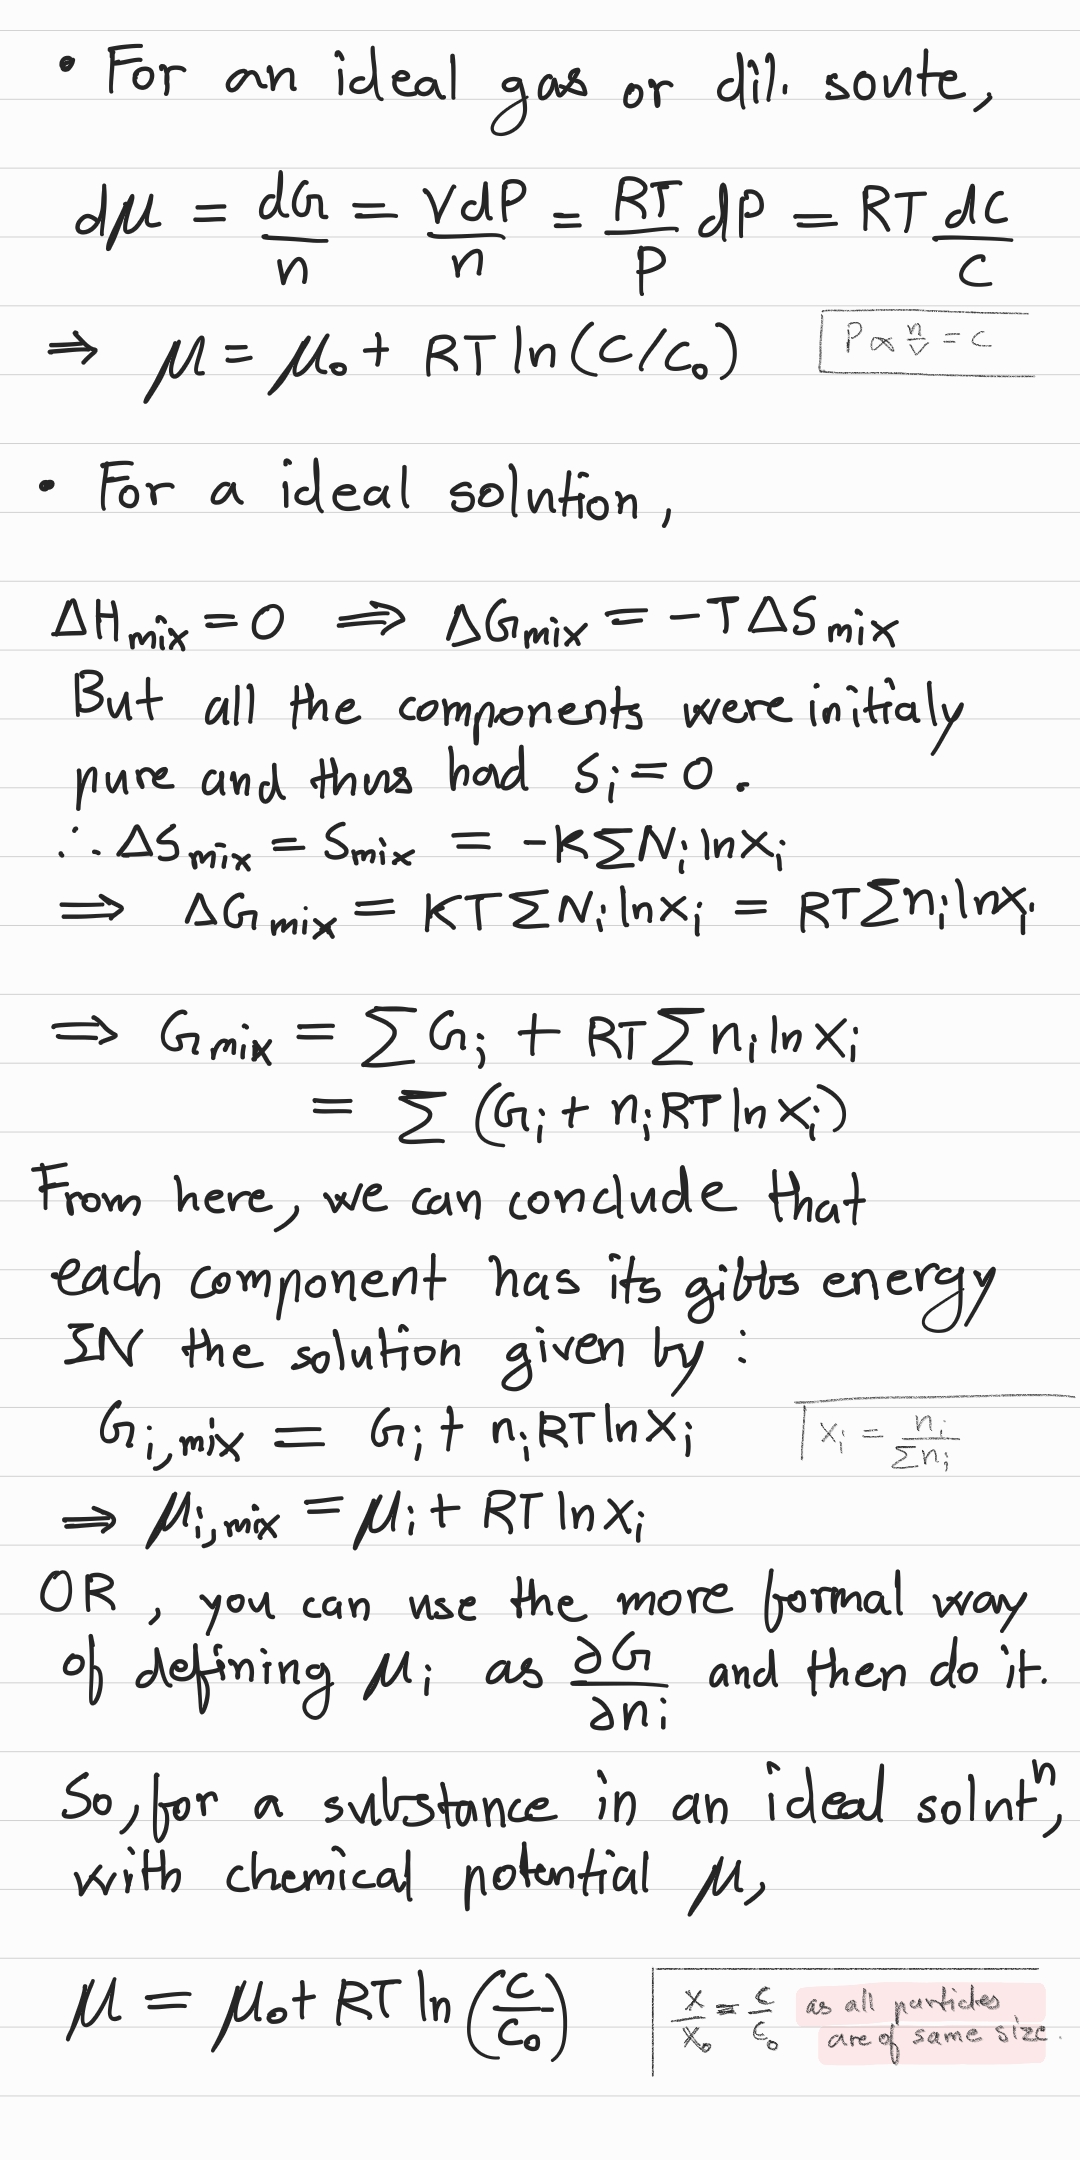 • For an ideal gas or dil. soute,
dμ = dG/n = VdP/n = RT/P dP = RT dc/c
⇒ μ = μ₀ + RT ln(c/c₀)
P ∝ n/v = c
• For a ideal solution,
ΔHmix = 0 ⇒ ΔGmix = -TΔSmix
But all the components were initialy
pure and thus had Si = 0.
∴ ΔSmix = Smix = -KΣNi lnxi
⇒ ΔGmix = KTΣNi lnxi = RTΣni lnxi
⇒ Gmix = ΣGi + RTΣni ln xi
= Σ (Gi + niRT ln xi)
From here, we can conclude that
each component has its gibbs energy
IN the solution given by :
Gi,mix = Gi + niRT ln xi
xi = ni/Σni
⇒ μi,mix = μi + RT ln xi
OR, you can use the more formal way
of defining μi as ∂G/∂ni and then do it.
So, for a substance in an ideal solutⁿ,
with chemical potential μ,
μ = μ₀ + RT ln(c/c₀)
x/x₀ = c/c₀ as all particles
are of same size.